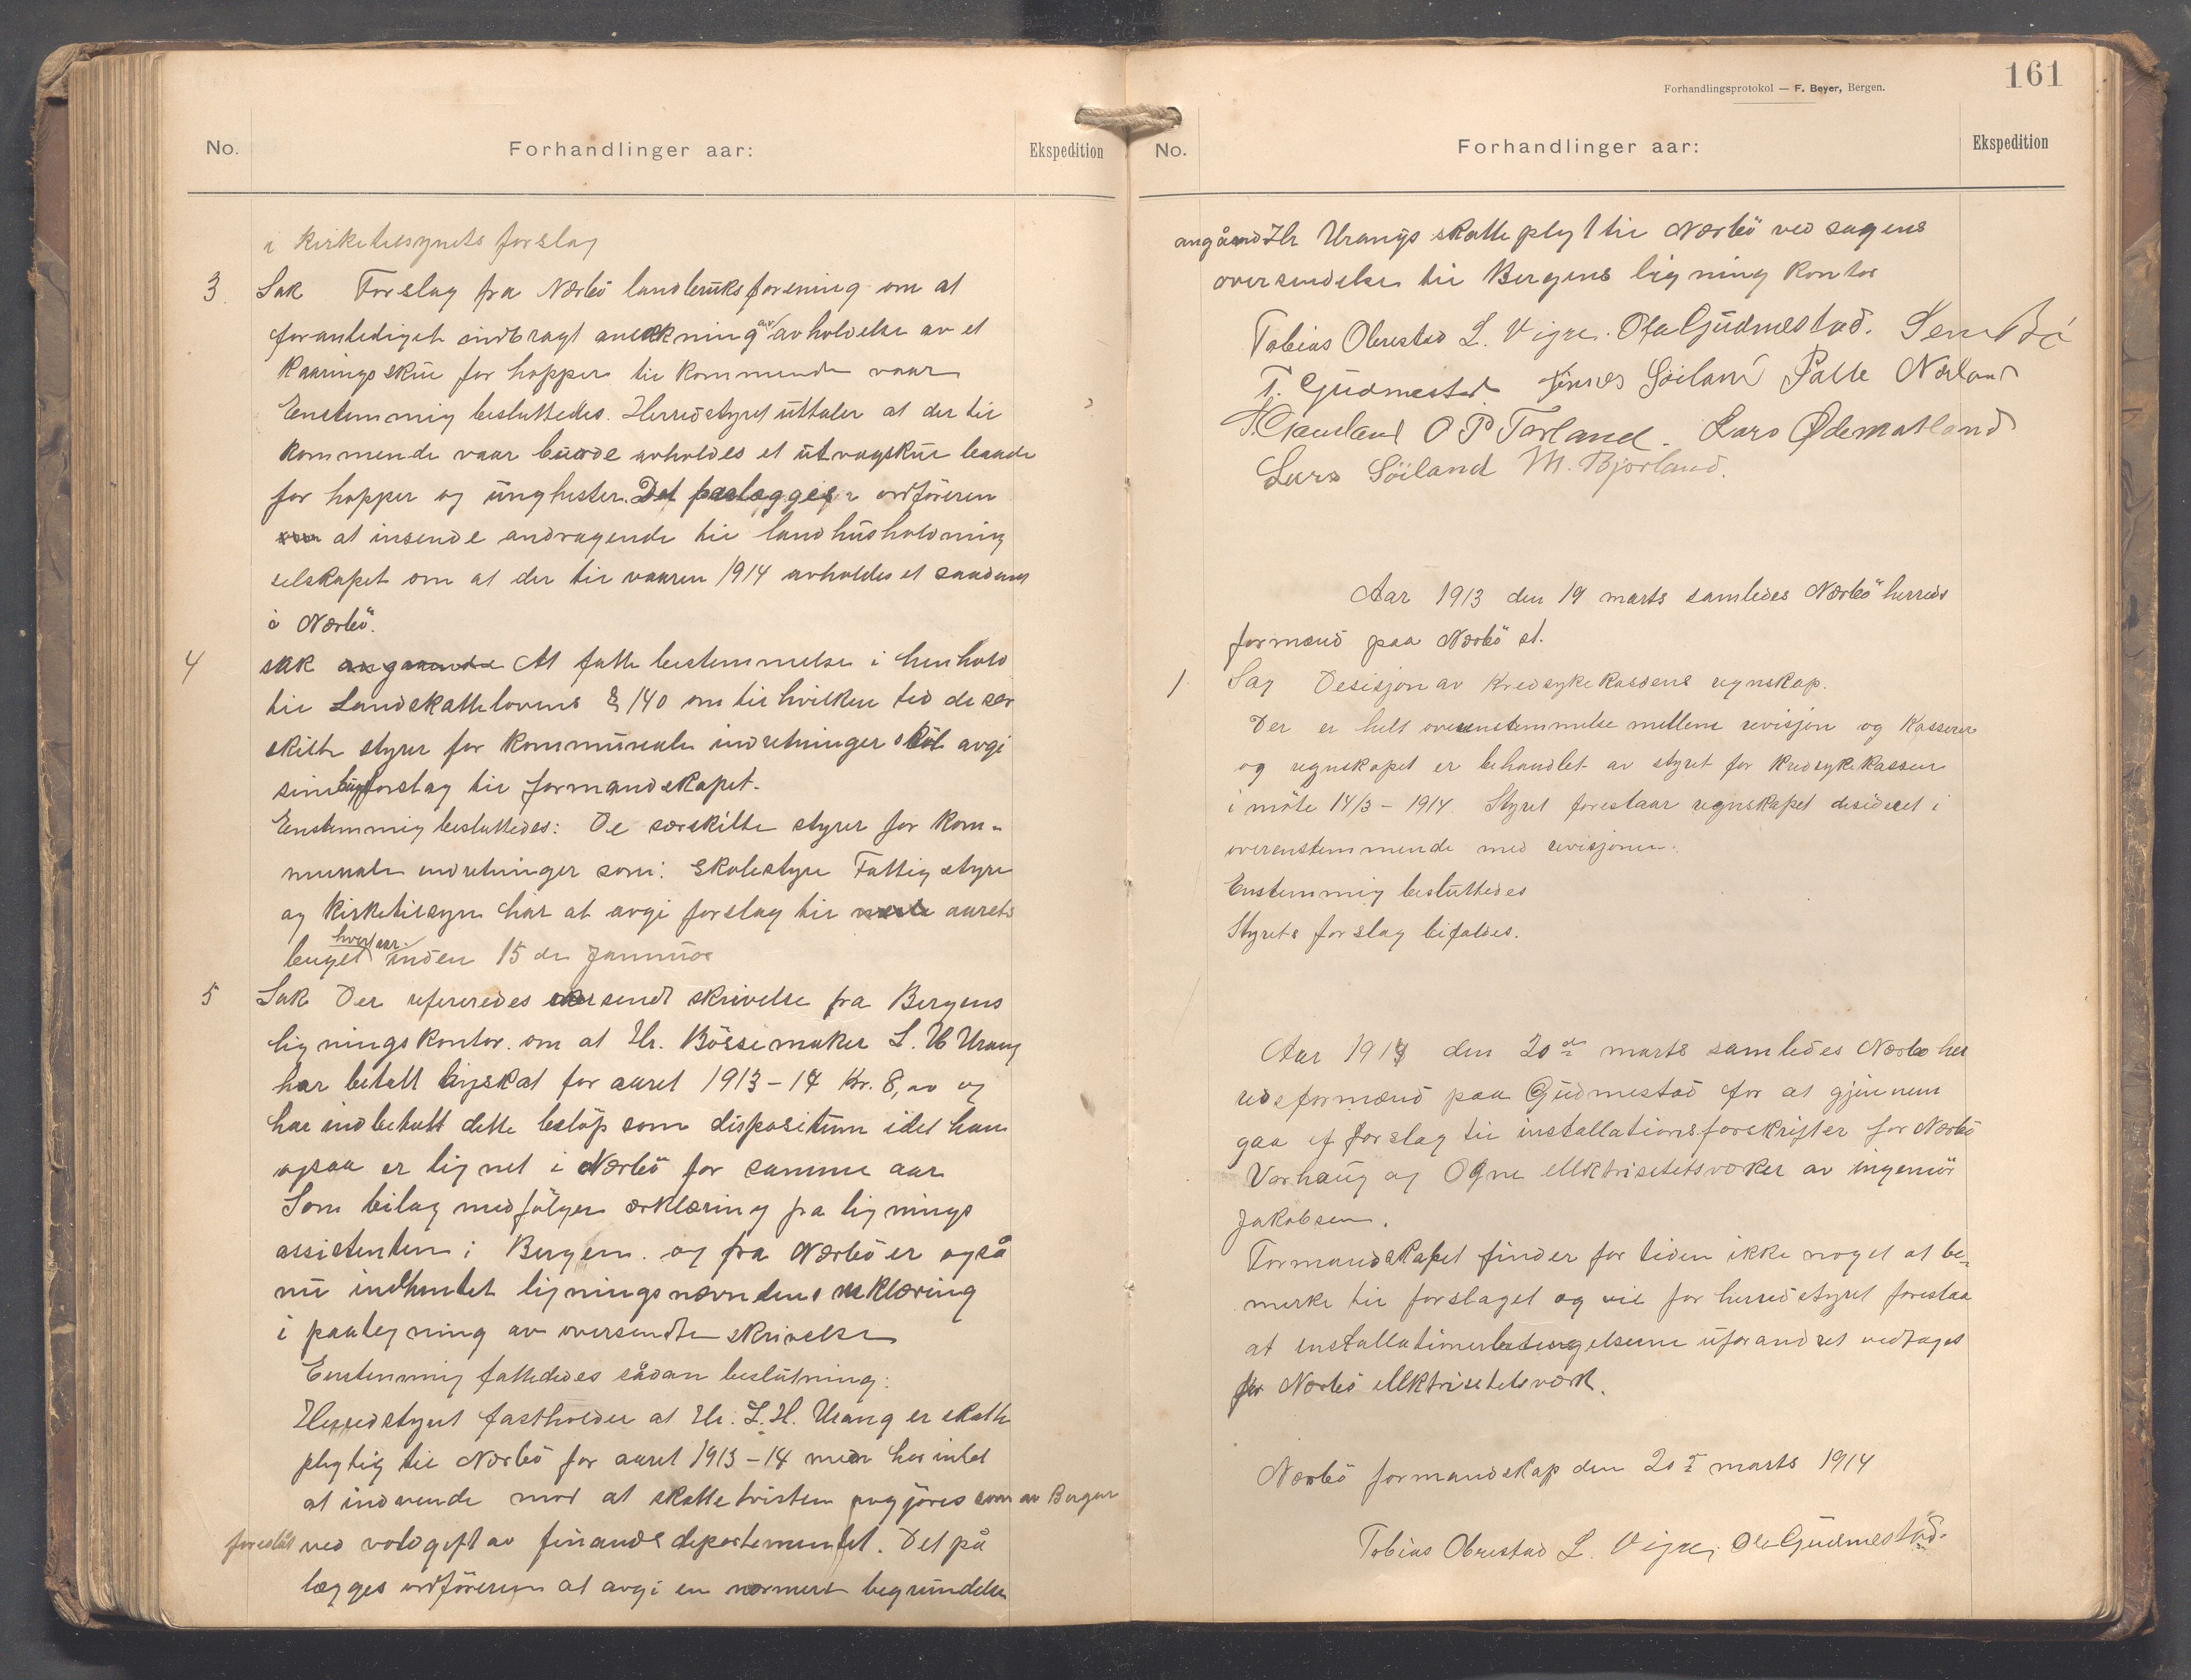 No.
Forhandlinger aar:
Ekspedition
i kirketilsynets forslag
3. Sak Forslag fra Nærbö landbruksforening om at
foranlediget indbragt ansökning av avholdelse av et
Kaaringsskue for hopper til kommende vaar
Enstemmig besluttedes. Herredstyret uttaler at der til
kommende vaar burde avholdes et utvagskue baade
for hopper og unghester. Det paalægges ordföreren
at insende andragende til landhusholdning
selskapet om at der til vaaren 1914 avholdes et saadant
i Nærbö.
4 sak angaaende At fatte bestemmelse i henhold
til Landskattelovens § 140 om til hvilken tid de sær
skilte styrer for kommunale indretninger skal avgi
sine forslag til formandskapet.
Enstemmig besluttedes: De særskilte styrer for kom-
munale indretninger som: Skolestyre Fattigstyre
og kirketilsyn har at avgi forslag til næste aarets
buget hvert aar inden 15 de Januar
5 Sak Der refereredes oversendt skrivelse fra Bergens
ligningskontor om at Hr. Bössemaker L. H Urang
har betalt byskat for aaret 1913-14 Kr. 8,00 og
har indbetalt dette belöp som dispositum idet han
ogsaa er lignet i Nærbö for samme aar
Som bilag medfölger ærklæring fra lignings
assistenten i Bergen. og fra Nærbö er også
nu indhentet ligningsnævndens erklæring
i paategning av oversendte skrivelse
Enstemmig fattedes sådan beslutning:
Herredstyret fastholder at Hr. L. H. Urang er skatte
plygtig til Nærbö for aaret 1913-14 men har intet
at indvende mod at skattetvisten avgjöres som av Bergen
foreslåt ved voldgift av finansdepartementet. Det på
lægges ordföreren at avgi en nærmere begrundelse
Forhandlingsprotokol — F. Beyer, Bergen.
161
No.
Forhandlinger aar:
Ekspedition
angående Hr Urangs skatteplygt til Nærbö ved sagens
oversendelse til Bergens ligning kontor
Tobias Obrestad L. Vigre. Ola Gudmestad.
T. Gudmestad Jonas Söiland Palle Nærland
O P Torland. Lars Ødemotland
Lars Söiland M. Bjorland.
Aar 1913 den 19 marts samledes Nærbö herreds
formænd paa Nærbö st.
1 Sag Desisjon av Kredsykekassens regnskap.
Der er helt overenstemmelse mellem revisjon og Kasserer
og regnskapet er behandlet av styret for kredsykekassen
i möte 14/3 - 1914. Styret forestaar regnskapet desideret i
overenstemmende med revisjonen.
Enstemmig besluttedes
Styrets forslag bifaldes.
Aar 1914 den 20de marts samledes Nærbö her
redsformænd paa Gudmestad for at gjennem
gaa et forslag til installationsforskrifter for Nærbö
Varhaug og Ogne elektrisitetsværker av ingeniör
Jakobsen.
Formandskapet finder for tiden ikke noget at be-
merke til forslaget og vil for herredstyret forestaa
at installationsbetingelserne uforandret vedtages
for Nærbö elektrisitetsværk.
Nærbö formandskap den 20de marts 1914
Tobias Obrestad L. Vigre, Ola Gudmestad.